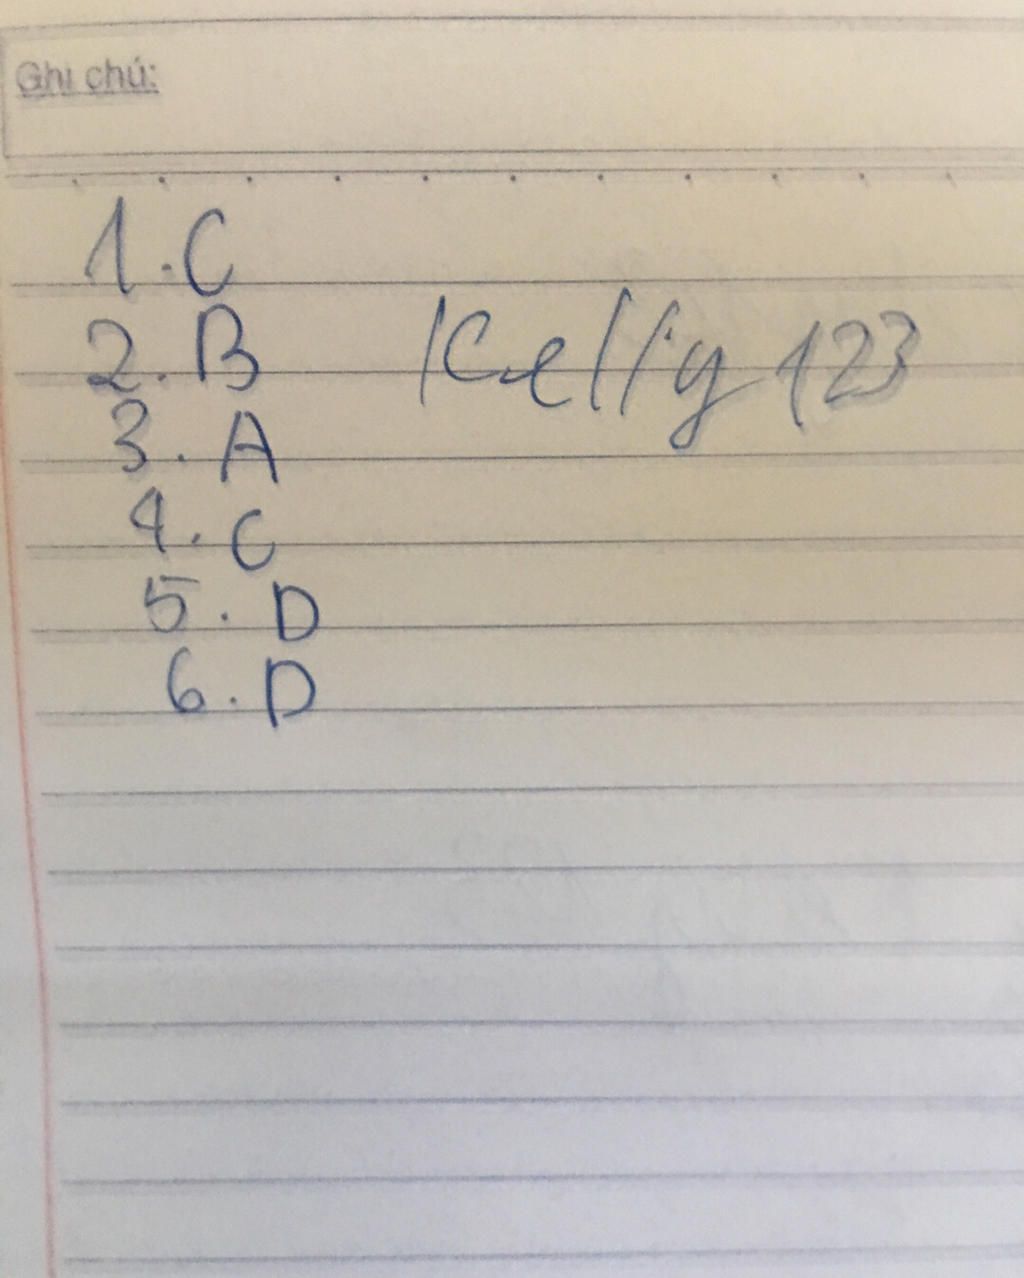 Ghi chú:
1. C
2. B
Kelly 123
3. A
4. C
5. D
6. D